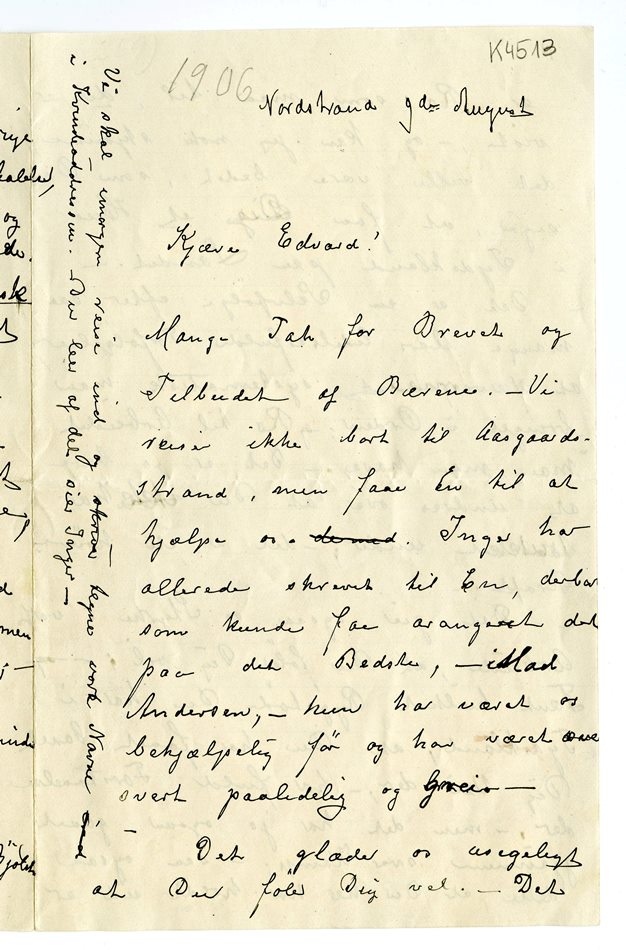 K4513
1906
Nordstrand 9de August
Kjære Edvard!
Mange Tak for Brevet og
Tilbudet af Bærene. – Vi
reiser ikke bort til Aasgaards-
strand, men faae En til at
hjælpe os dermed. Inger har
allerede skrevet til En, derbor
som kunde faae arangeret det
paa det Bedste, – Mad
Andersen, – hun har været os
behjælpelig før og har været
svert paalidelig og Greie –
Det glæder os usigeligt
at Du føler Dig vel. – Det
Vi skal imorgen reise ind og skrive – tegne vore Navne ind
i Kvindeaddressen. – Du leer af det sier Inger –
og
de.
sk
men